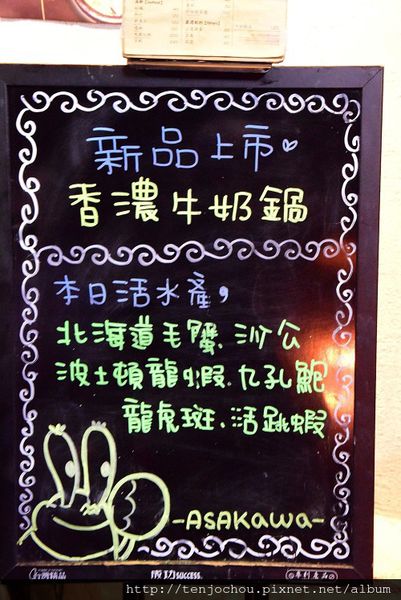 新品上市
香濃牛奶鍋
本日活水產,
北海道毛蟹.沙公
波士頓龍蝦.九孔鮑
龍虎斑.活跳蝦
-ASAKAWA-
台灣精品
成功success
專利產品
http://tenjochou.pixnet.net/album